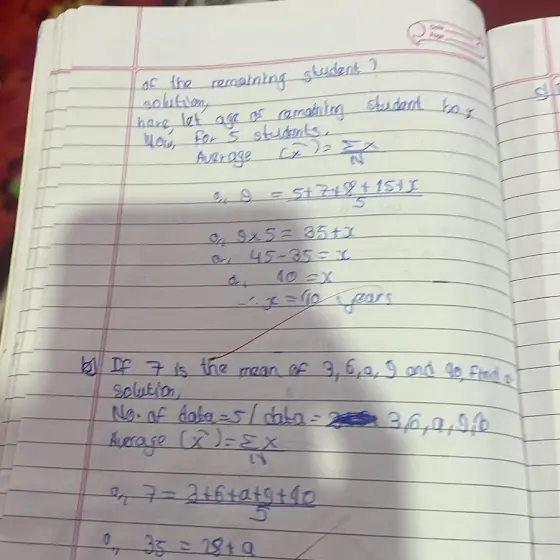 of the remaining student?
solution,
here, let age of remaining student be x
Now, for 5 students,
Average (x̄) = Σx/N
or, 9 = 5+7+8+15+x/5
or, 9×5 = 35+x
or, 45-35 = x
or, 10 = x
∴ x = 10 years
b) If 7 is the mean of 3, 6, a, 9 and 10, find a
solution,
No. of data = 5 / data = 3, 6, a, 9, 10
Average (x̄) = Σx/N
or, 7 = 3+6+a+9+10/5
or, 35 = 28+a